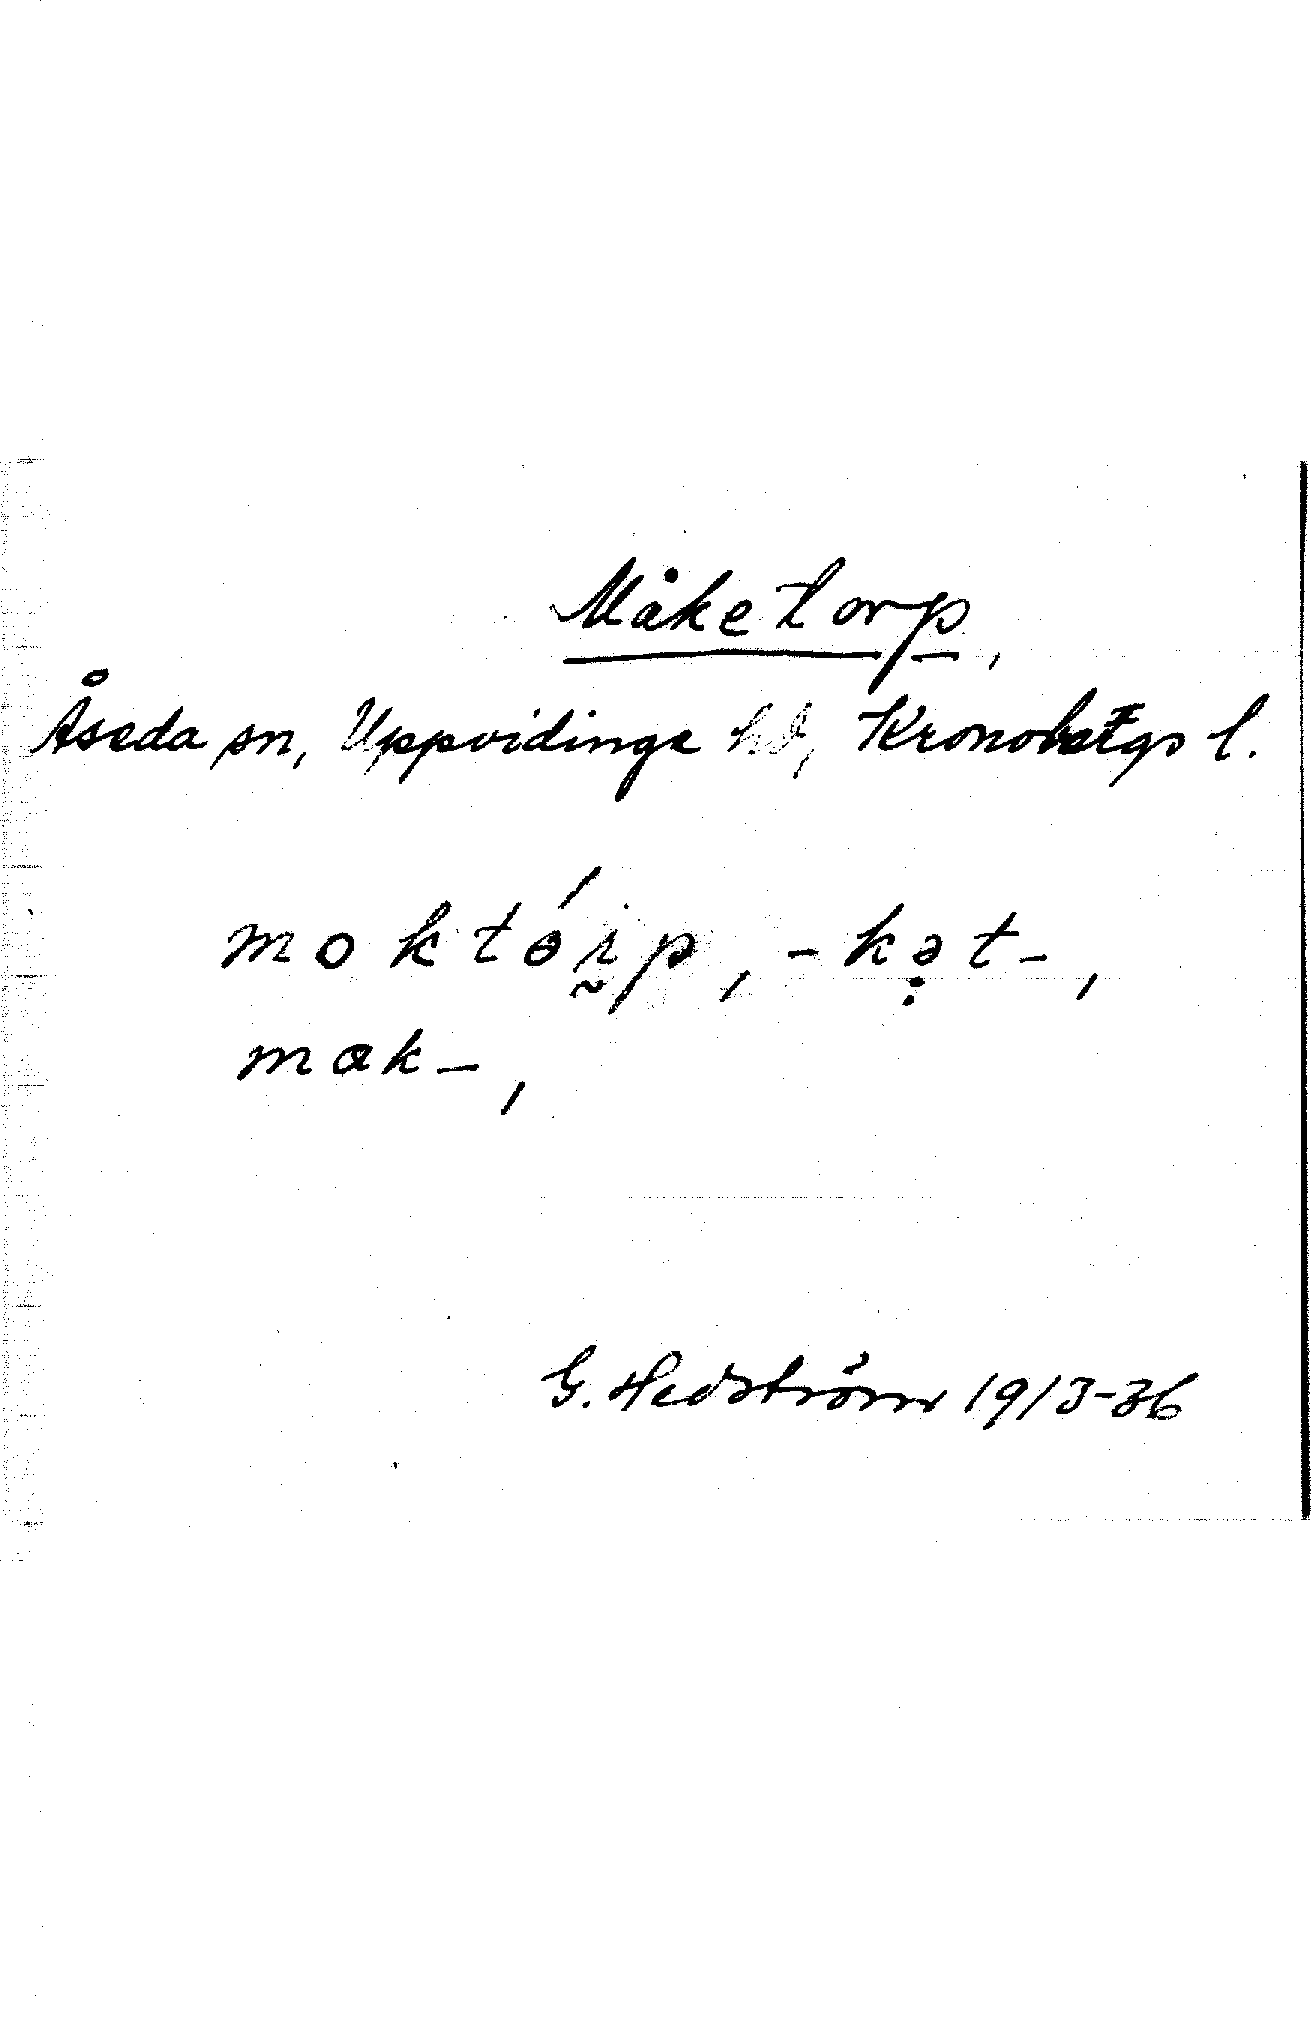 Måketorp,
Åseda sn, Uppvidinge hd, Kronobergs l.
moktɵ́rp, -kət-,
mɑk-,
G. Hedström 19/3-36